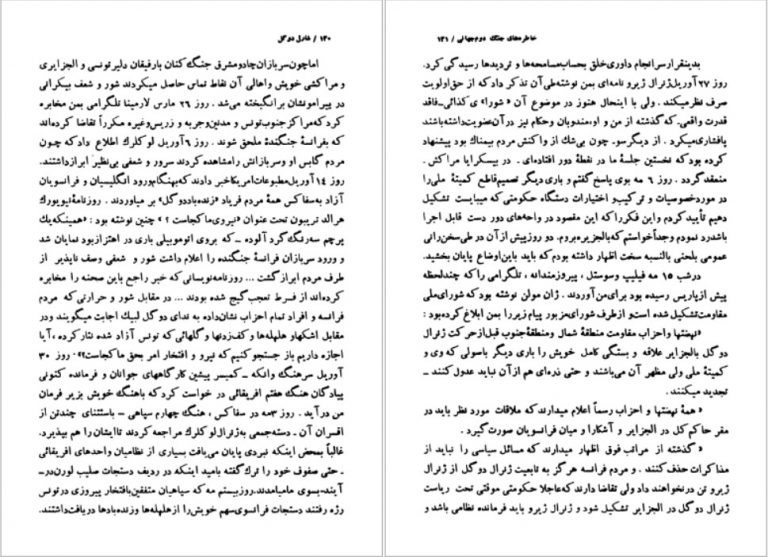 خاطره‌های جنگ دوم جهانی / ۱۳۱
بدینقرار سرانجام داوری خلق بحساب مسامحه‌ها و تردیدها رسیدگی کرد.
روز ۲۷ آوریل ژنرال ژیرو نامه‌ای بمن نوشته طی آن تذکر داد که از حق اولویت
صرف نظر میکند. ولی با اینحال هنوز در موضوع آن «شورا»ی کذائی ـ فاقد
قدرت واقعی ـ که گذشته از من و او، مندوبان و حکام نیز در آن عضویت داشته باشند
پافشاری میکرد. از دیگرسو ـ چون بی‌شك از واکنش مردم بیمناك بود پیشنهاد
کرده بود که نخستین جلسهٔ ما در نقطهٔ دور افتاده‌ای ـ در بیسکرا یا مراکش ـ
منعقد گردد. روز ۶ مه بوی پاسخ گفتم و باری دیگر تصمیم قاطع کمیتهٔ ملی را
در مورد خصوصیات و ترکیب و اختیارات دستگاه حکومتی که میبایست تشکیل
دهیم تأیید کردم و این فکر را که این مقصود در واحه‌های دور دست قابل اجرا
باشد رد نمودم و جداً خواستم که بالجزیره بروم. دو روز پیش از آن در طی سخن‌رانی
عمومی بلحنی بالنسبه سخت اظهار داشته بودم که باید باین اوضاع پایان بخشید.
در شب ۱۵ مه فیلیپ و سوستل، پیروزمندانه، تلگرامی را که چند لحظه
پیش از پاریس رسیده بود برای من آوردند. ژان مولن نوشته بود که شورای ملی
مقاومت تشکیل شده است و از طرف شورای مزبور پیام زیر را بمن ابلاغ کرده بود:
«نهضتها و احزاب مقاومت منطقهٔ شمال و منطقهٔ جنوب قبل از حرکت ژنرال
دو گل بالجزایر علاقه و بستگی کامل خویش را باری دیگر باصولی که وی و
کمیتهٔ ملی ولی مظهر آن می‌باشند و حتی ذره‌ای هم از آن نباید عدول کنند ـ
تجدید میکنند.
« همهٔ نهضتها و احزاب رسماً اعلام میدارند که ملاقات مورد نظر باید در
مقر حاکم کل در الجزایر و آشکارا و میان فرانسویان صورت گیرد.
« گذشته از مراتب فوق اظهار میدارند که مسائل سیاسی را نباید از
مذاکرات حذف کنند. و مردم فرانسه هرگز به تابعیت ژنرال دو گل از ژنرال
ژیرو تن در نخواهند داد ولی تقاضا دارند که عاجلا حکومتی موقتی تحت ریاست
ژنرال دو گل در الجزایر تشکیل شود و ژنرال ژیرو باید فرمانده نظامی باشد و
۱۳۰ / شارل دو گل
اما چون سربازان چاد و مشرق جنگ کنان بارفیقان دلیر تونسی و الجزایری
و مراکشی خویش و اهالی آن نقاط تماس حاصل میکردند شور و شعف بیکرانی
در پیرامونشان برانگیخته می‌شد. روز ۲۶ مارس لارمینا تلگرامی بمن مخابره
کرد که مراکز جنوب تونس و مدنین و جربه و زریس وغیره مکرراً تقاضا کرده‌اند
که بفرانسهٔ جنگنده ملحق شوند. روز ۶ آوریل لو کلرك اطلاع داد که چون
مردم گابس او و سربازانش را مشاهده کردند سرور و شعفی بی‌نظیر ابراز داشتند.
روز ۱۴ آوریل مطبوعات امریکا خبر دادند که بهنگام ورود انگلیسیان و فرانسویان
آزاد به سفاکس همهٔ مردم فریاد «زنده باد دو گل» بر میاوردند. روزنامهٔ نیویورك
هرالد تریبون تحت عنوان «نیروی ما کجاست؟» چنین نوشته بود: «همینکه یك
پرچم سه رنگ گرد آلوده ـ که بروی اتومبیلی باری در اهتزاز بود نمایان شد
و ورود سربازان فرانسهٔ جنگنده را اعلام داشت شور و شعفی وصف ناپذیر از
طرف مردم ابراز گشت ... روزنامه نویسانی که خبر راجع باین صحنه را مخابره
کرده‌اند از فرط تعجب گیج شده بودند ... در مقابل شور و حرارتی که مردم
فرانسه و افراد تمام احزاب نشان داده به ندای دو گل لبیك اجابت میگویند و در
مقابل اشکها و هلهله‌ها و کف‌زدنها و گلهائی که تونس آزاد شده نثار کرده، آیا
اجازه داریم باز جستجو کنیم که نیرو و افتخار امر بحق ما کجاست؟» روز ۳۰
آوریل سرهنگ وانکه ـ کمیسر پیشین کارگاههای جوانان و فرمانده کنونی
پیادگان هنگ هفتم افریقائی در خواست کرد که با هنگ خویش بزیر فرمان
من در آید. روز ۳ مه در سفاکس، هنگ چهارم سپاهی ـ باستثنای چند تن از
افسران آن ـ دسته جمعی به ژنرال لو کلرك مراجعه کردند تا ایشان را هم بپذیرد.
غالباً بمحض اینکه نبردی پایان می‌یافت بسیاری از نظامیان واحدهای افریقائی
ـ حتی صفوف خود را ترك گفته بامید اینکه در ردیف دستجات صلیب لورن در ـ
آیند ـ بسوی ما میامدند. روز بیستم مه که سپاهیان متفقین بافتخار پیروزی در تونس
رژه رفتند دستجات فرانسوی سهم خویش را از هلهله‌ها و زنده بادها دریافت داشتند.